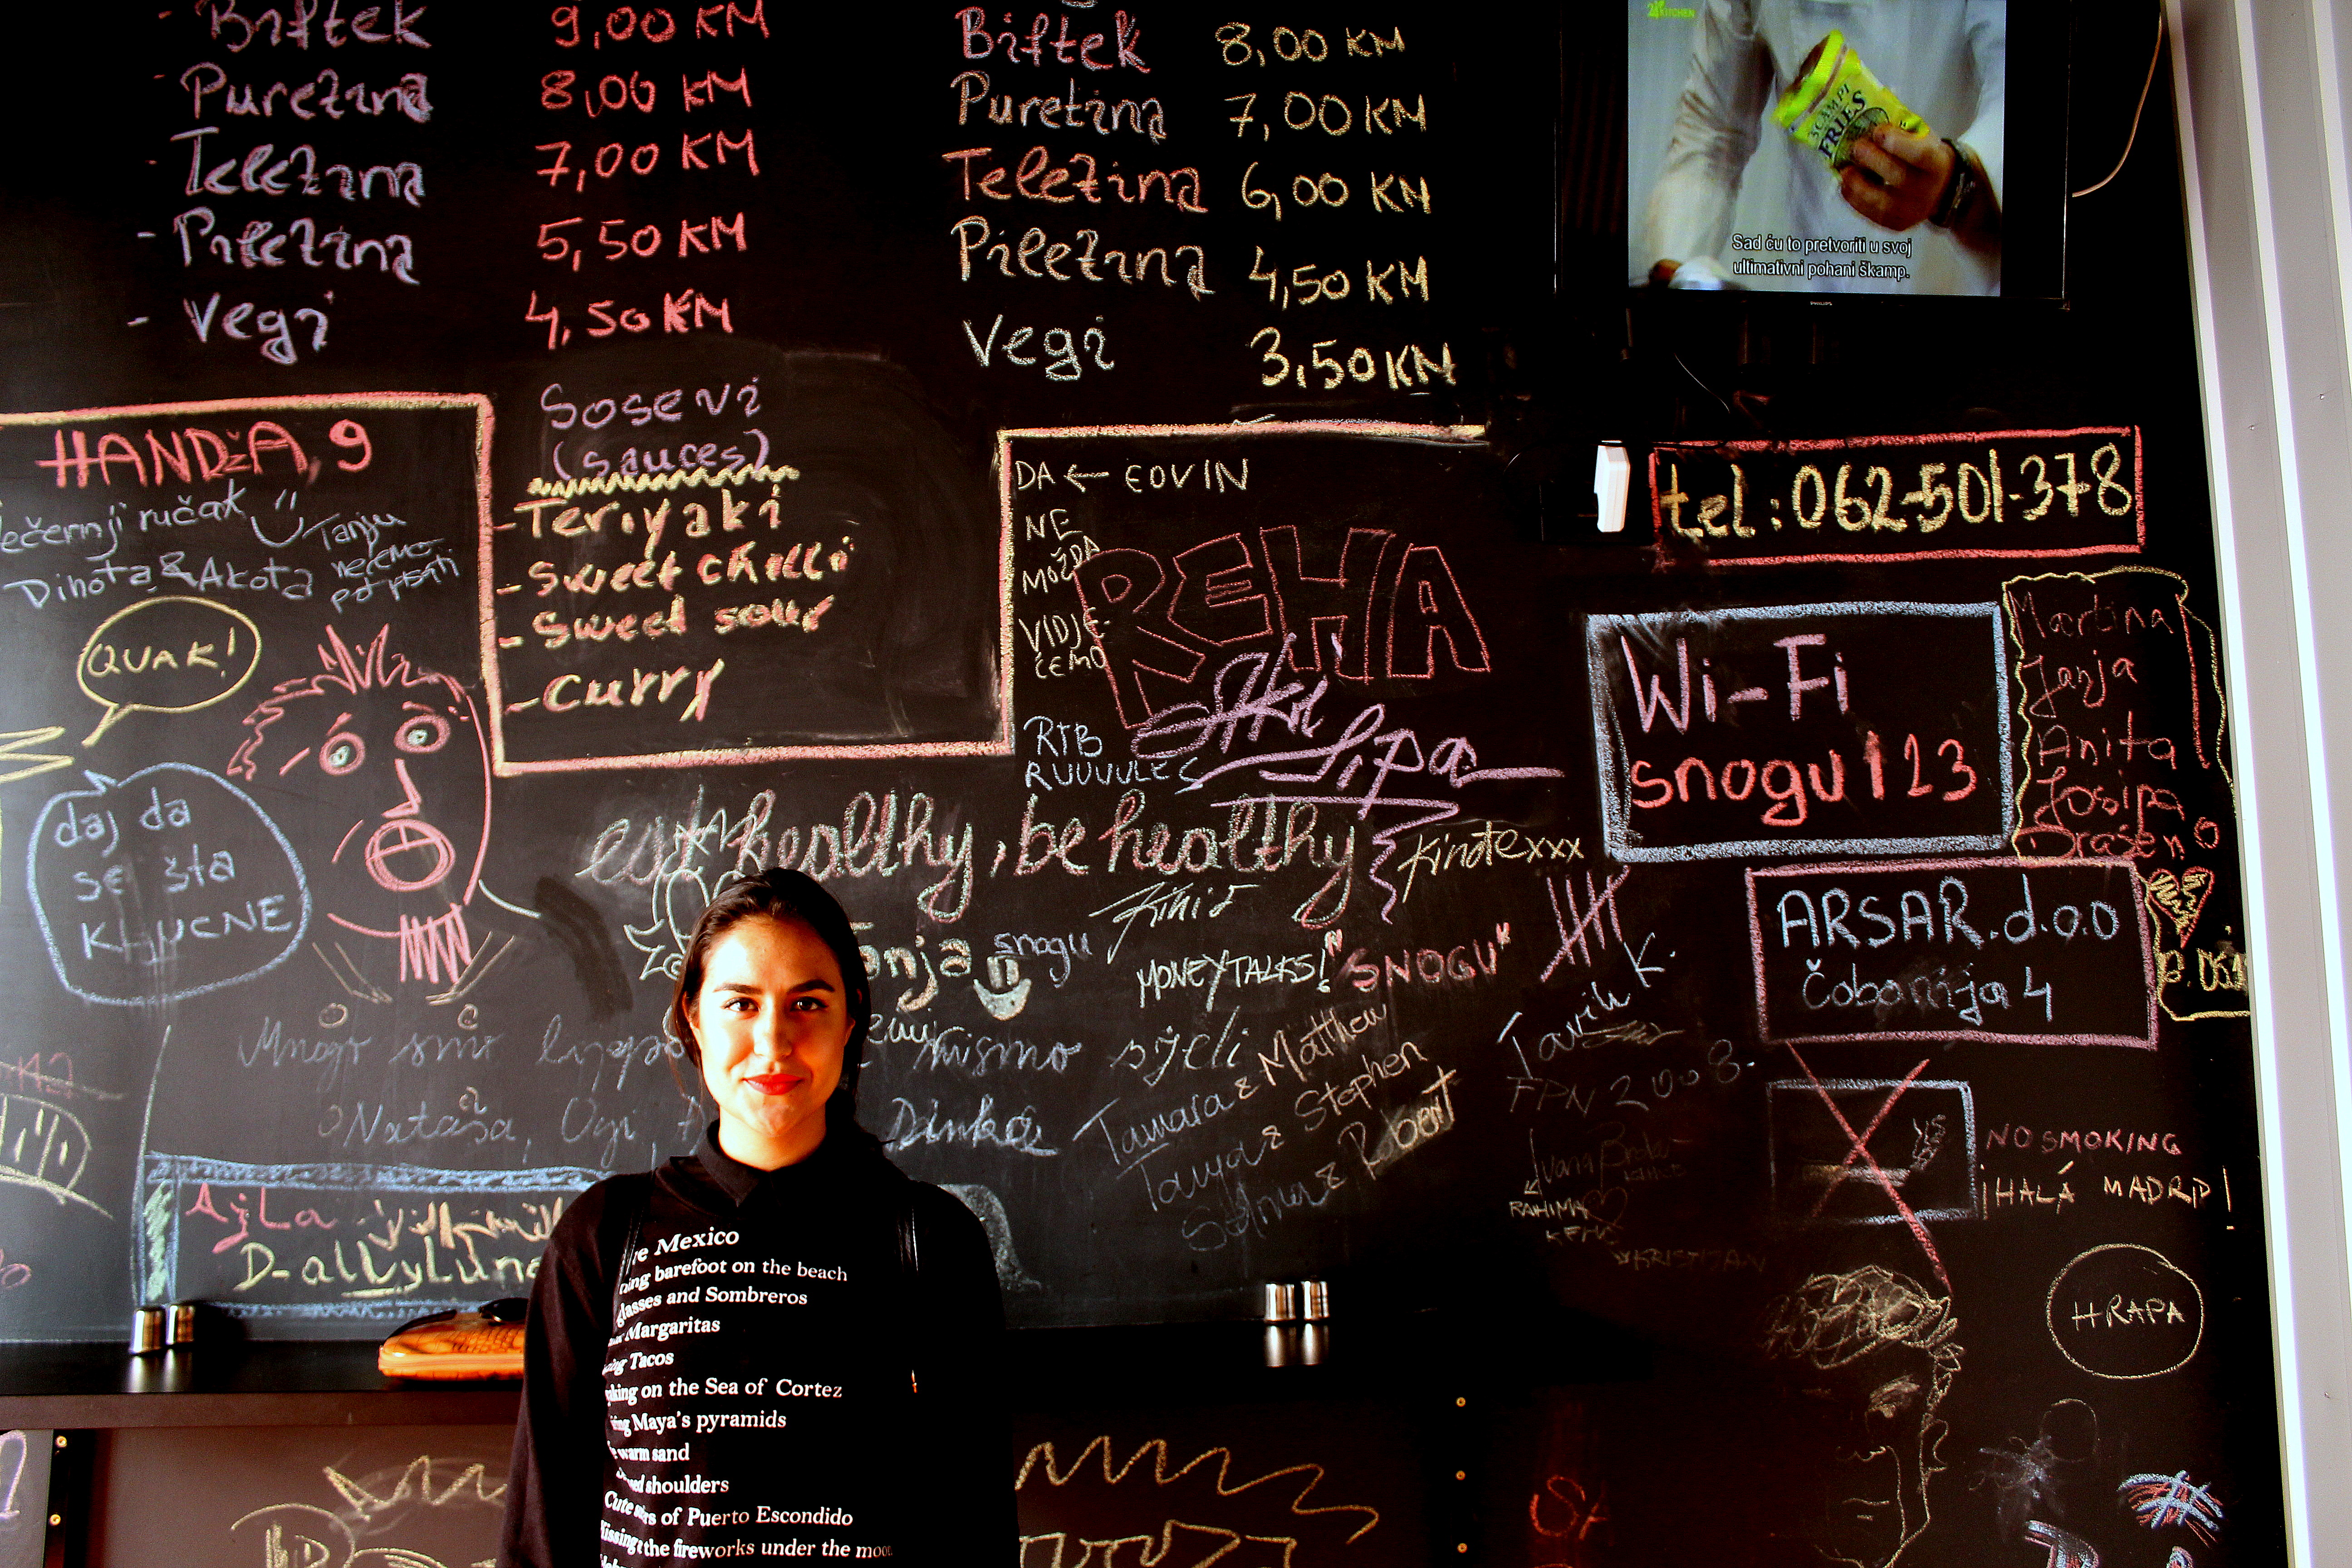 - Biftek 9,00 KM
- Puretina 8,00 KM
- Teletina 7,00 KM
- Piletina 5,50 KM
- Vegi 4,50 KM
Biftek 8,00 KM
Puretina 7,00 KM
Teletina 6,00 KM
Piletina 4,50 KM
Vegi 3,50 KM
24 KITCHEN
SCAMPI
FRIES
Sad ću to pretvoriti u svoj
ultimativni pohani škamp.
PHILIPS
HANDŽA, 9
ručak
Tanju
nećemo
Dinota & Akota
QUAK!
daj da
se šta
KLJUCNE
Sosevi
(sauces)
- Teriyaki
- Sweet chilli
- Sweet sour
- Curry
DA ← EOVIN
NE
MOŽDA
VIDJE-
ĆEMO
REHA
RTB
RUUUULES
Lipa
tel: 062-501-378
Wi-Fi
snogu123
Martina
Janja
Anita
Josipa
Drašen
eat healthy, be healthy
Kinotexxx
snogu
MONEY TALKS!
"SNOGU"
ARSAR.d.o.o
Čobanija 4
Mnogo smo lijepo
smo sjeli
Nataša, Ogi,
Dinka
Tamara & Matthew
Tanya & Stephen
& Robert
Tarik K.
FPN 2008.
Ivana
RAHIMA
KRISTIJAN
NO SMOKING
¡HALÁ MADRID!
HRAPA
Ajla
D-allyLuna
Mexico
barefoot on the beach
and Sombreros
Margaritas
Tacos
on the Sea of Cortez
Maya's pyramids
warm sand
shoulders
Cute of Puerto Escondido
Kissing the fireworks under the